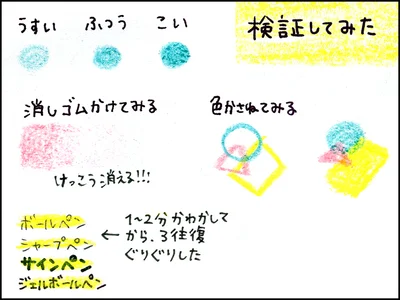 うすい ふつう こい
検証してみた
消しゴムかけてみる
色かさねてみる
けっこう消える!!!
ボールペン
シャープペン
サインペン
ジェルボールペン
← 1〜2分かわかして
から、3往復
ぐりぐりした